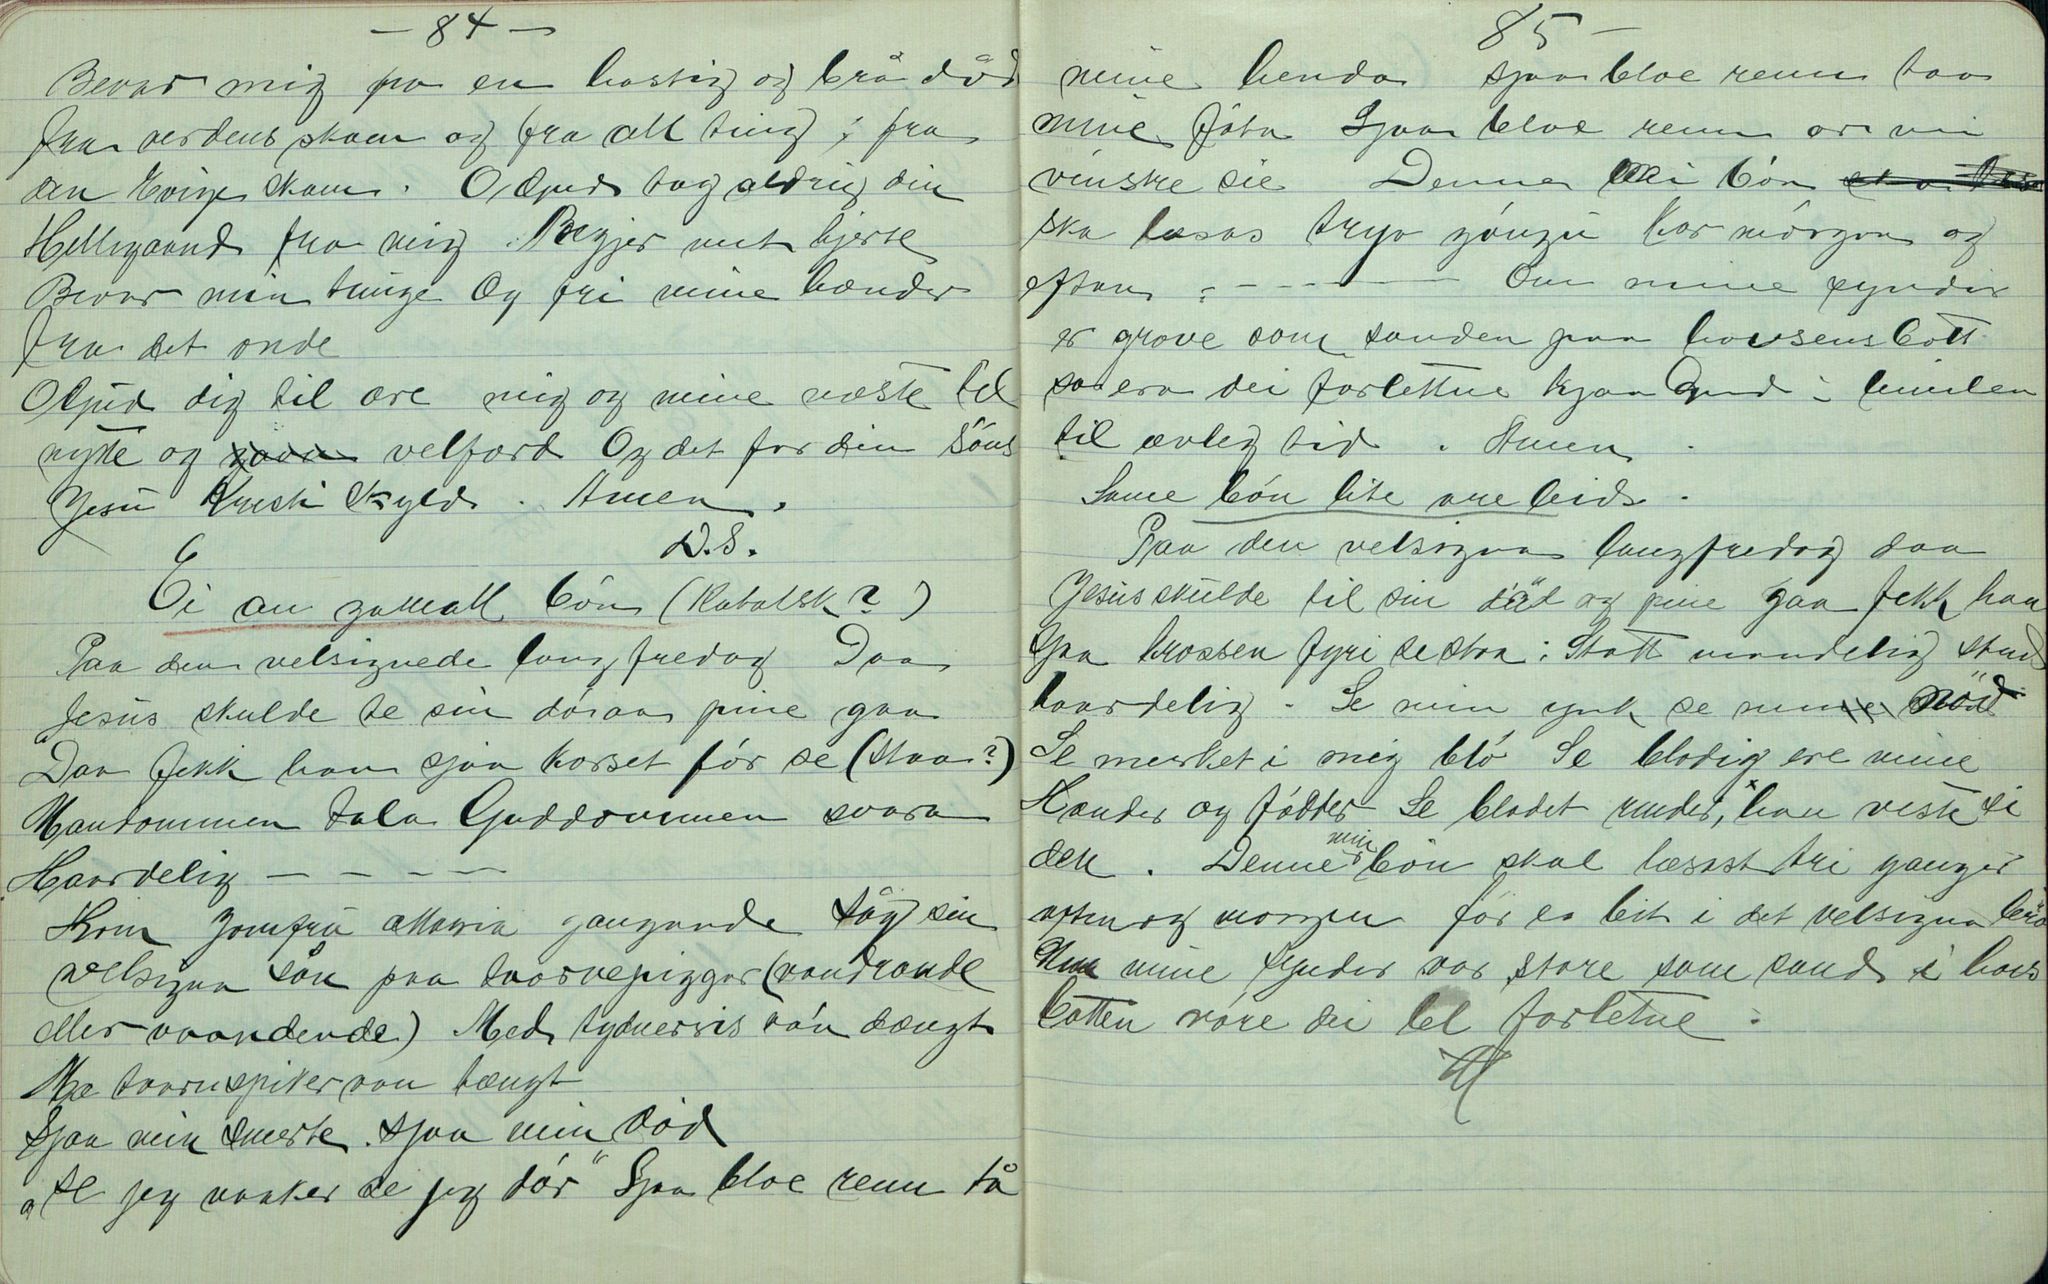 - 84 -
Bevar mig fra en hastig og brå död
fra verdens skam og fra all ting; fra
den Evige skam. O Gud tag aldrig din
Helligaand fra mig. Regjer mit hjerte
Bevar min tunge Og fri mine hænder
fra det onde
O Gud dig til ære mig og mine næste til
nytte og gavn velfærd Og det for din söns
Jesu Kristi skyld. Amen.
D.S.
Ei an gamall bön (Katolsk?)
Paa den velsignede langfredag Daa
Jesus skulde te sin döraa pine gaa
Daa fekk han sjaa korset för se (staa?)
Mandommen tala Guddommen svara
Haardelig - - - - -
Kom Jomfru Maria gangande såg sin
velsigna sön paa taarnepigger (vandrande
eller vaandende) Med tydnerris van dængt
Me taarnspiker van hængt
Sjaa min smerte. sjaa min död
„Se jeg vanker se jeg dör" Sjaa bloe renn tå
85 -
mine henda sjaa bloe renn taa
mine föta Sjaa bloe renn or mi
vinstre sie Denne mi bön
ska læsas tryo göngu kor mörgon og
eftan ; - - - - - - Om mine syndir
er grove som sanden paa havsens bott
so era dei forlettne hjaa Gud i himlen
til ævleg tid. Amen.
Same bön lite vre leid.
Paa den velsigna langfredag daa
Jesus skulde til sin död og pine gaa fekk han
sjaa krossen fyri se staa: Statt mandelig statt
haardelig. Se min ynk se min nöd
Se merket i mig blö Se blodig ere mine
Hænder og födder Se blodet runder, han viste si
deh. Denne min bön skal læsast tri ganger
aften og morgen för ein bit i det velsigna brö
Um mine synder var store som sand i havs
botten vöre dei lel forletne.